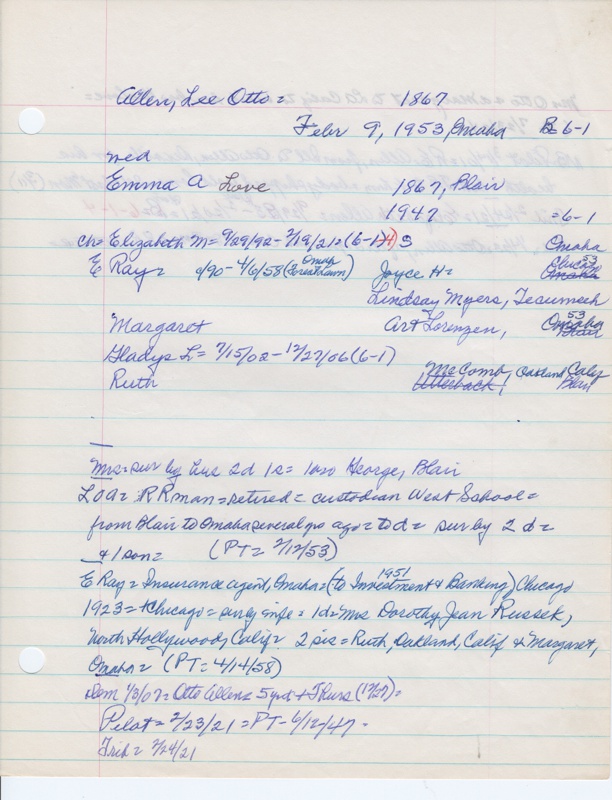 Allen, Lee Otto = 1867
Febr 9, 1953, Omaha B 6-1
med
Emma A Love 1867, Blair
1947 = 6-1
ch = Elizabeth M = 9/29/92 - 2/19/21 = (6-1) S Omaha
E Ray = 4/90 - 4/6/58 (Omaha Forest Lawn) Joyce H = Chicago Omaha
Lindsay Myers, Tecumseh
Margaret Art Lorenzen, Omaha 53 Blair
Gladys L = 7/15/02 - 12/27/06 (6-1)
Ruth McComb, Oakland Calif
Utterback, Blair
Mrs = sur by hus 2d 1s = 1bro George, Blair
LOA = RRman = retired = custodian West School =
from Blair to Omaha several yrs ago = to d = sur by 2 d =
+ 1 son = (PT = 2/12/53)
E Ray = Insurance agent, Omaha = (to Investment & Banking) Chicago 1951
1923 = + Chicago = sur by wife = 1d = Mrs Dorothy Jean Russek,
North Hollywood, Calif = 2 sis = Ruth, Oakland, Calif & Margaret,
Omaha = (PT = 4/14/58)
Dem 1/3/07 = Otto Allen = 5 yr d + Thurs (12/27) =
Pilot = 2/23/21 = PT - 6/12/47 =
Trib = 2/24/21